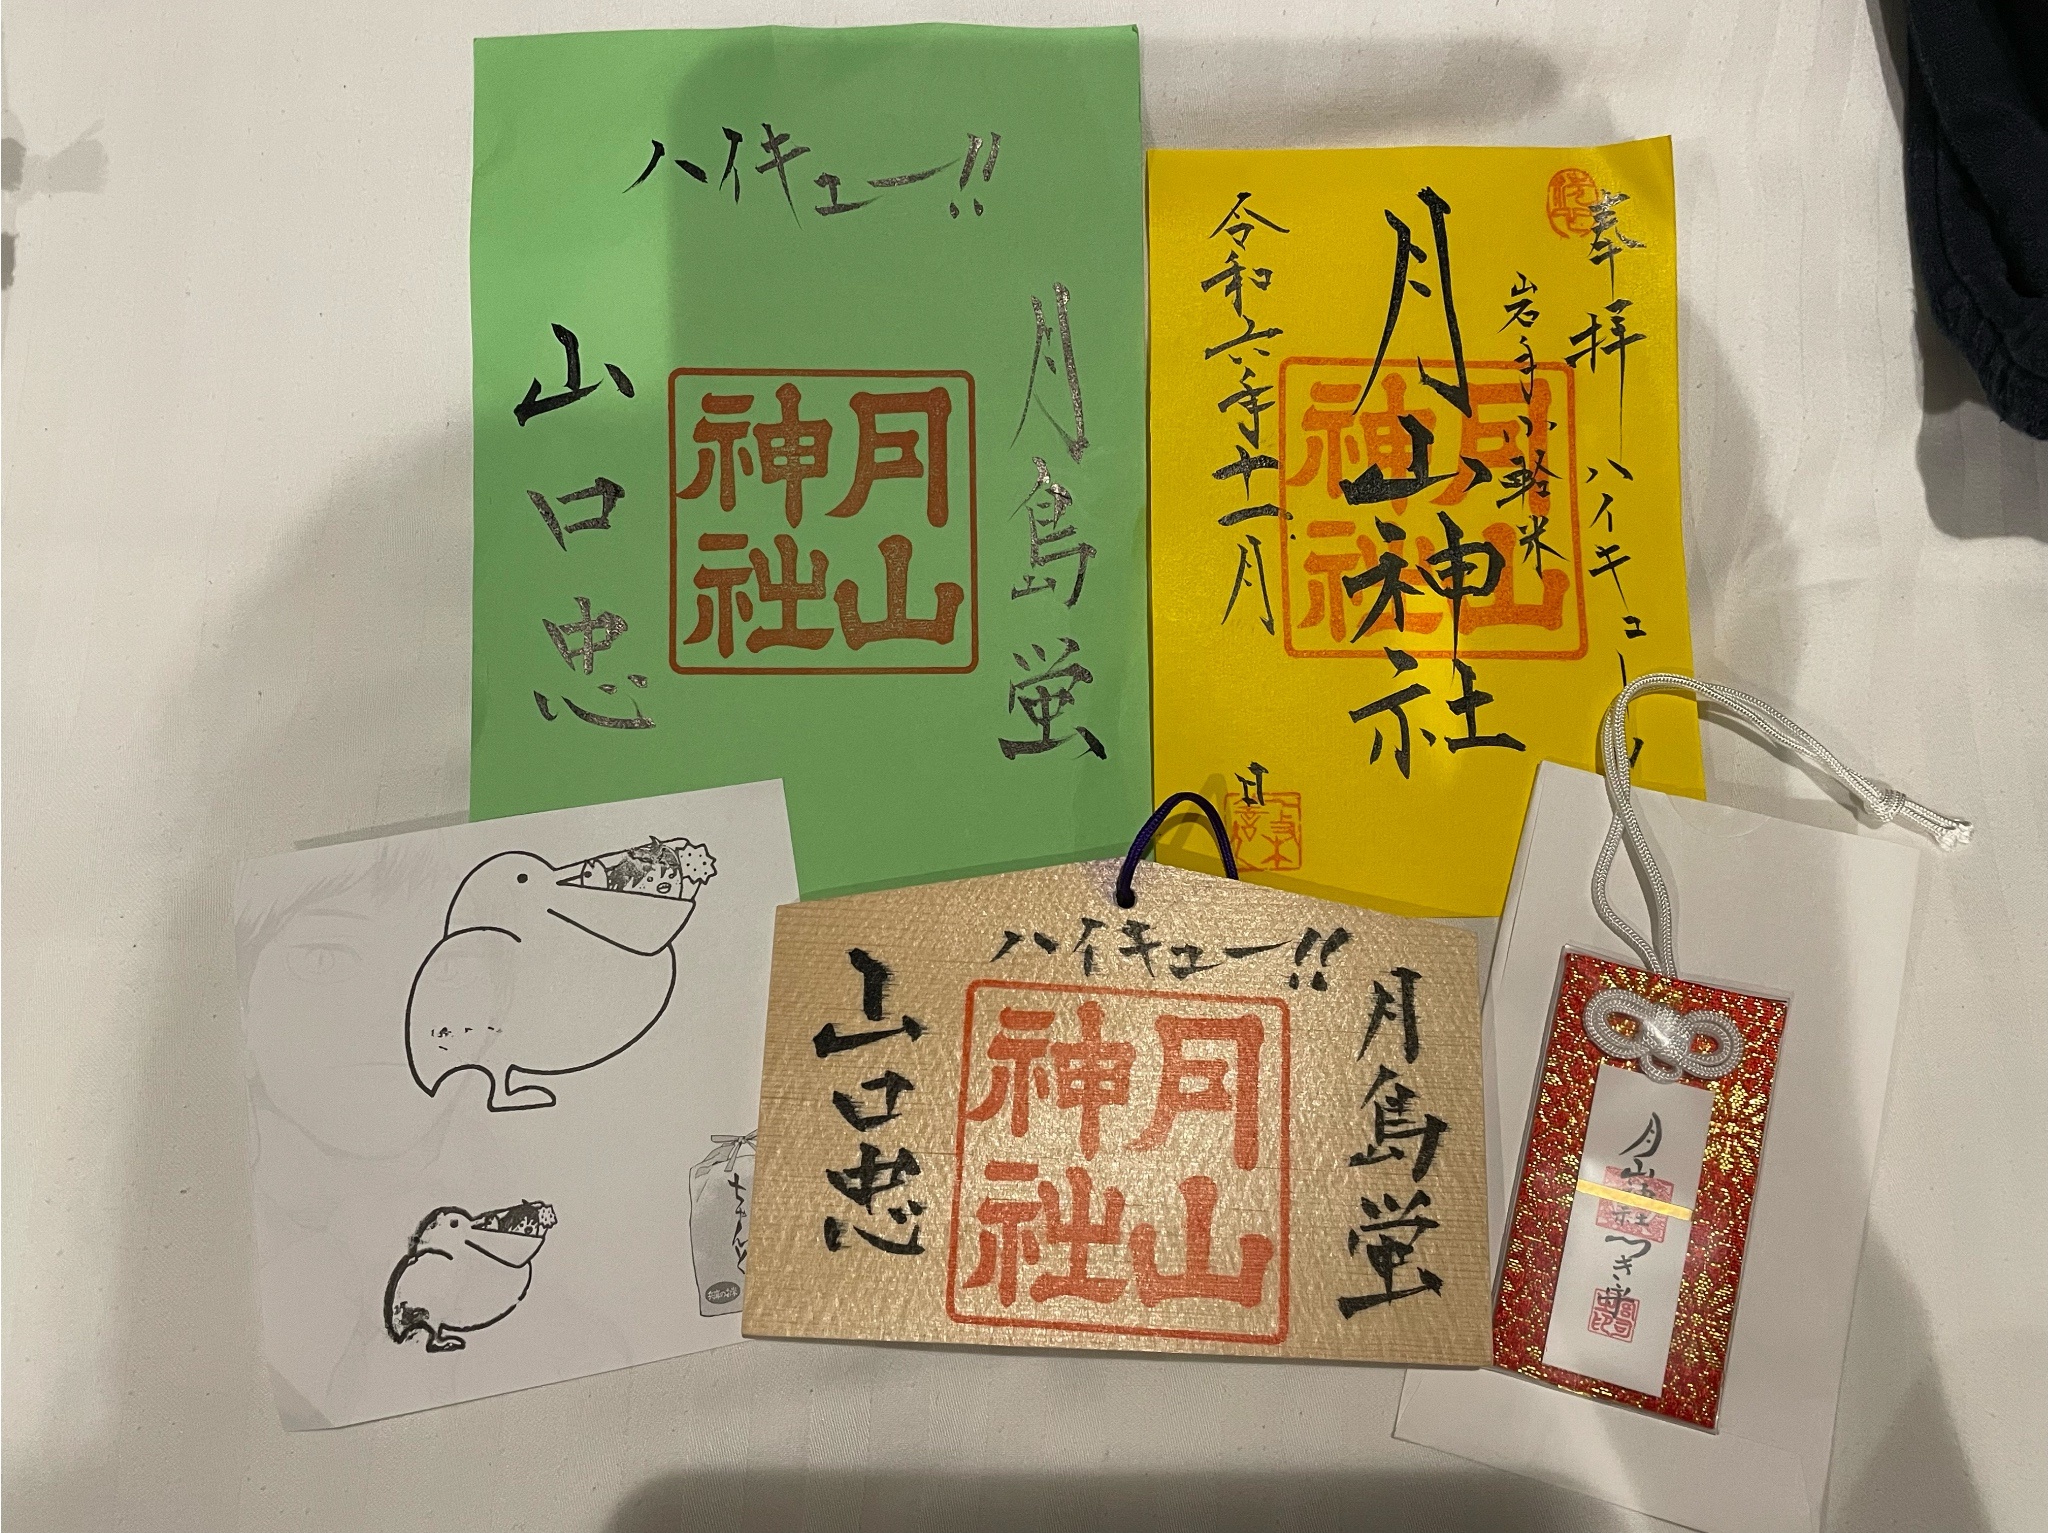 ハイキュー!!
月島蛍
月山
神社
山口忠
奉拝 ハイキュー
岩手小軽米
月山神社
月山
神社
令和六年十一月
日
ハイキュー!!
月島蛍
月山
神社
山口忠
月山神社
つき
ちゃんと